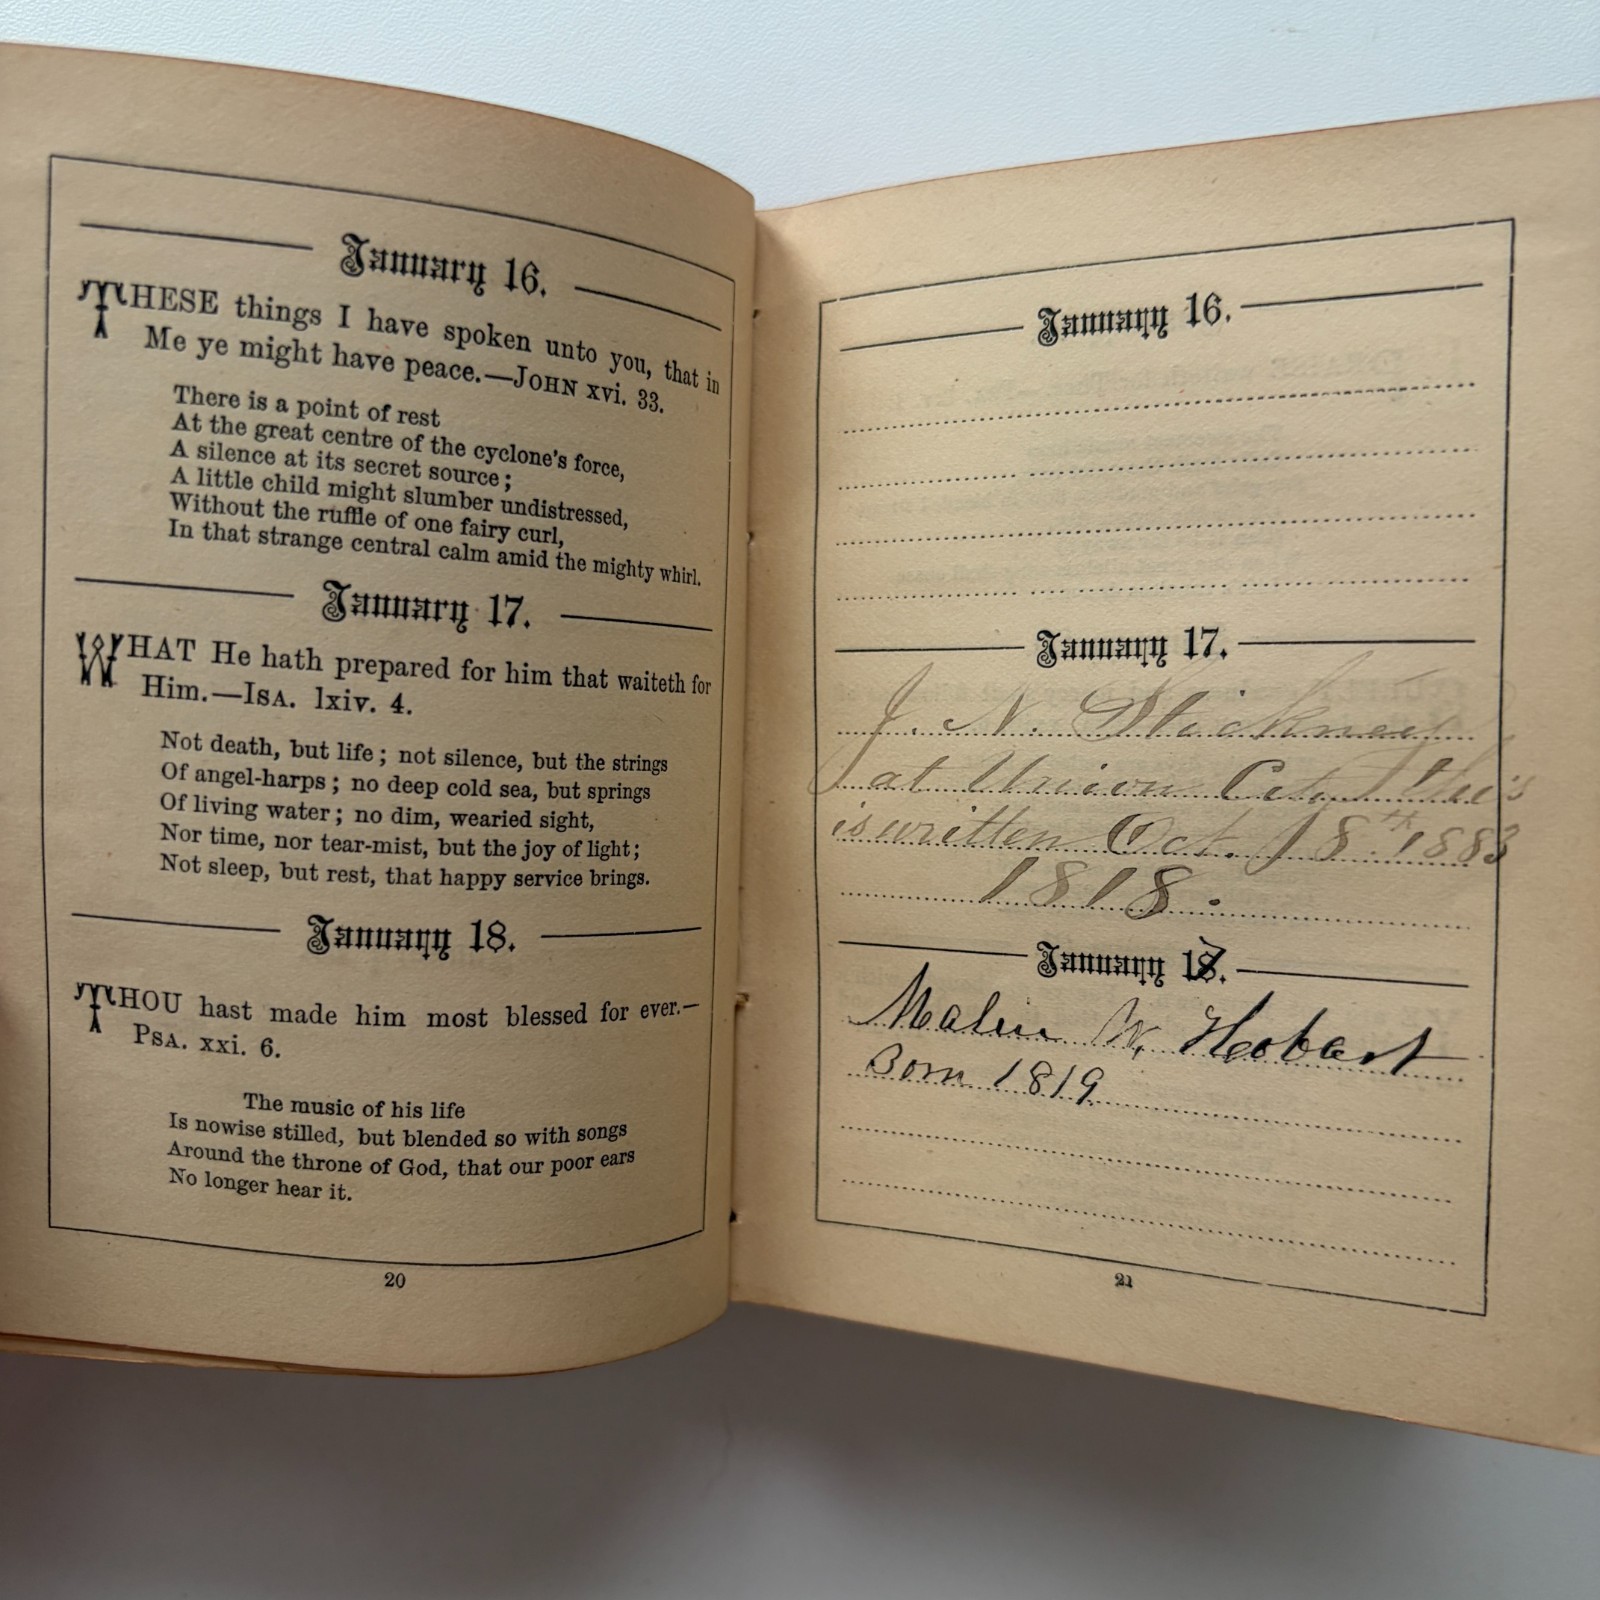 January 16.
THESE things I have spoken unto you, that in
Me ye might have peace.—JOHN xvi. 33.
There is a point of rest
At the great centre of the cyclone's force,
A silence at its secret source;
A little child might slumber undistressed,
Without the ruffle of one fairy curl,
In that strange central calm amid the mighty whirl.
January 17.
WHAT He hath prepared for him that waiteth for
Him.—ISA. lxiv. 4.
Not death, but life; not silence, but the strings
Of angel-harps; no deep cold sea, but springs
Of living water; no dim, wearied sight,
Nor time, nor tear-mist, but the joy of light;
Not sleep, but rest, that happy service brings.
January 18.
THOU hast made him most blessed for ever.—
PSA. xxi. 6.
The music of his life
Is nowise stilled, but blended so with songs
Around the throne of God, that our poor ears
No longer hear it.
20
January 16.
January 17.
J. N. Stickney
at Union City this
is written Oct. 18th 1883
1818.
January 18.
W. Hobart
Born 1819
21